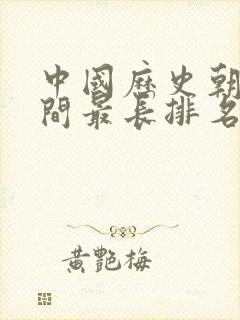 中國歷史朝
間最長排名
黃艷梅